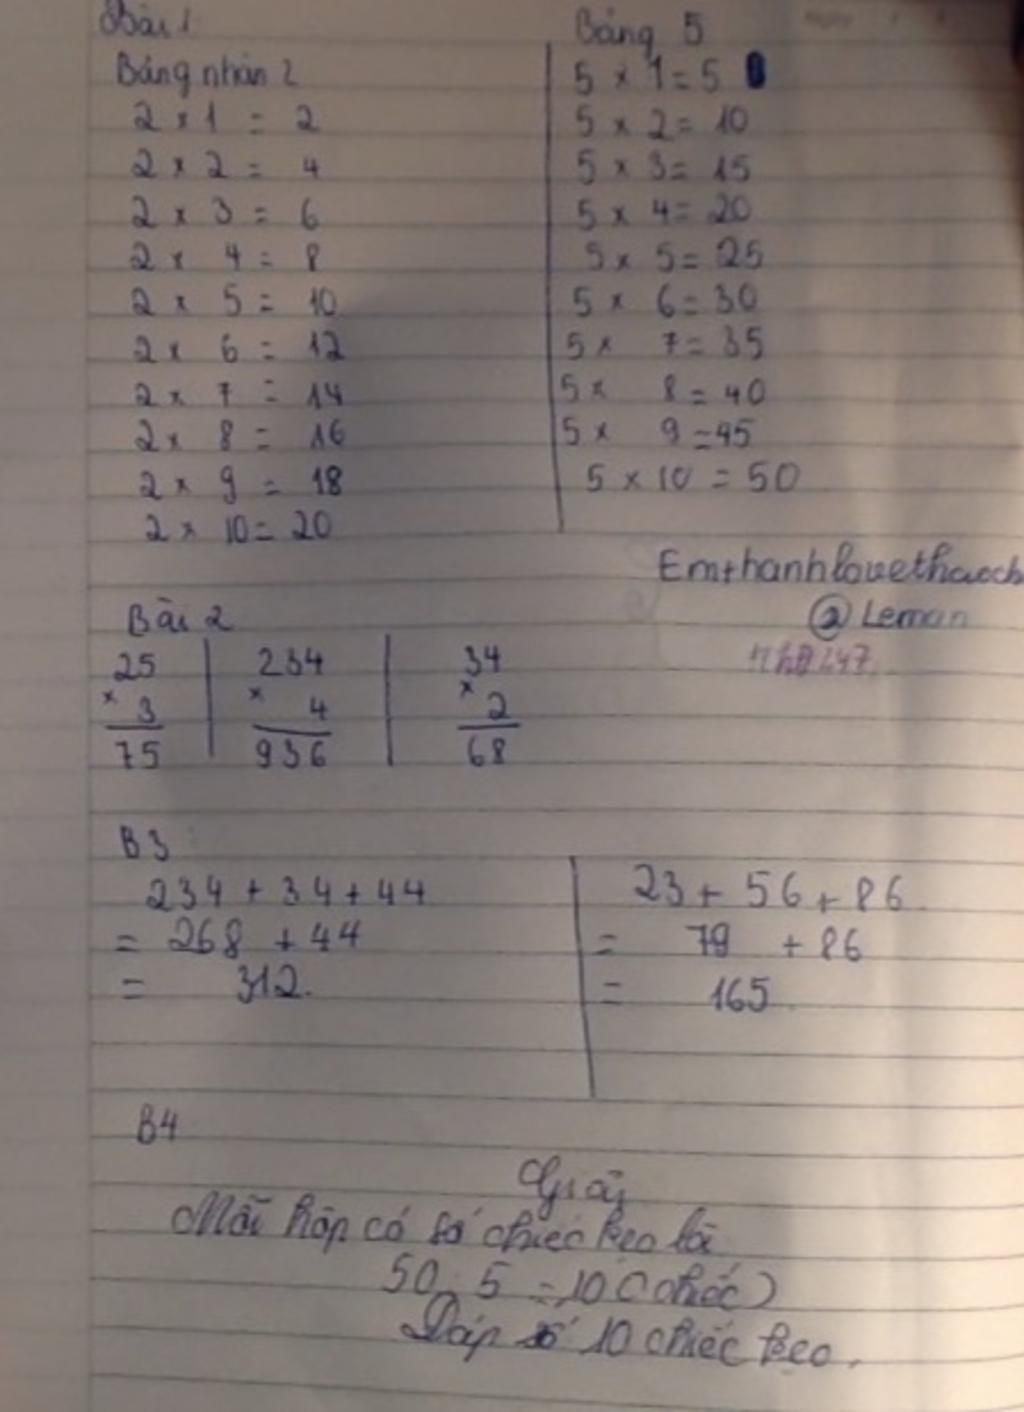 Bài 1
Bảng nhân 2
2 x 1 = 2
2 x 2 = 4
2 x 3 = 6
2 x 4 = 8
2 x 5 = 10
2 x 6 = 12
2 x 7 = 14
2 x 8 = 16
2 x 9 = 18
2 x 10 = 20
Bảng 5
5 x 1 = 5
5 x 2 = 10
5 x 3 = 15
5 x 4 = 20
5 x 5 = 25
5 x 6 = 30
5 x 7 = 35
5 x 8 = 40
5 x 9 = 45
5 x 10 = 50
@ Leman
Bài 2
25
x 3
75
234
x 4
936
34
x 2
68
B3
234 + 34 + 44
= 268 + 44
= 312.
23 + 56 + 86
= 79 + 86
= 165
B4
Giải
Mỗi hộp có số chiếc kẹo là
50 : 5 = 10 (chiếc)
Đáp số 10 chiếc kẹo.